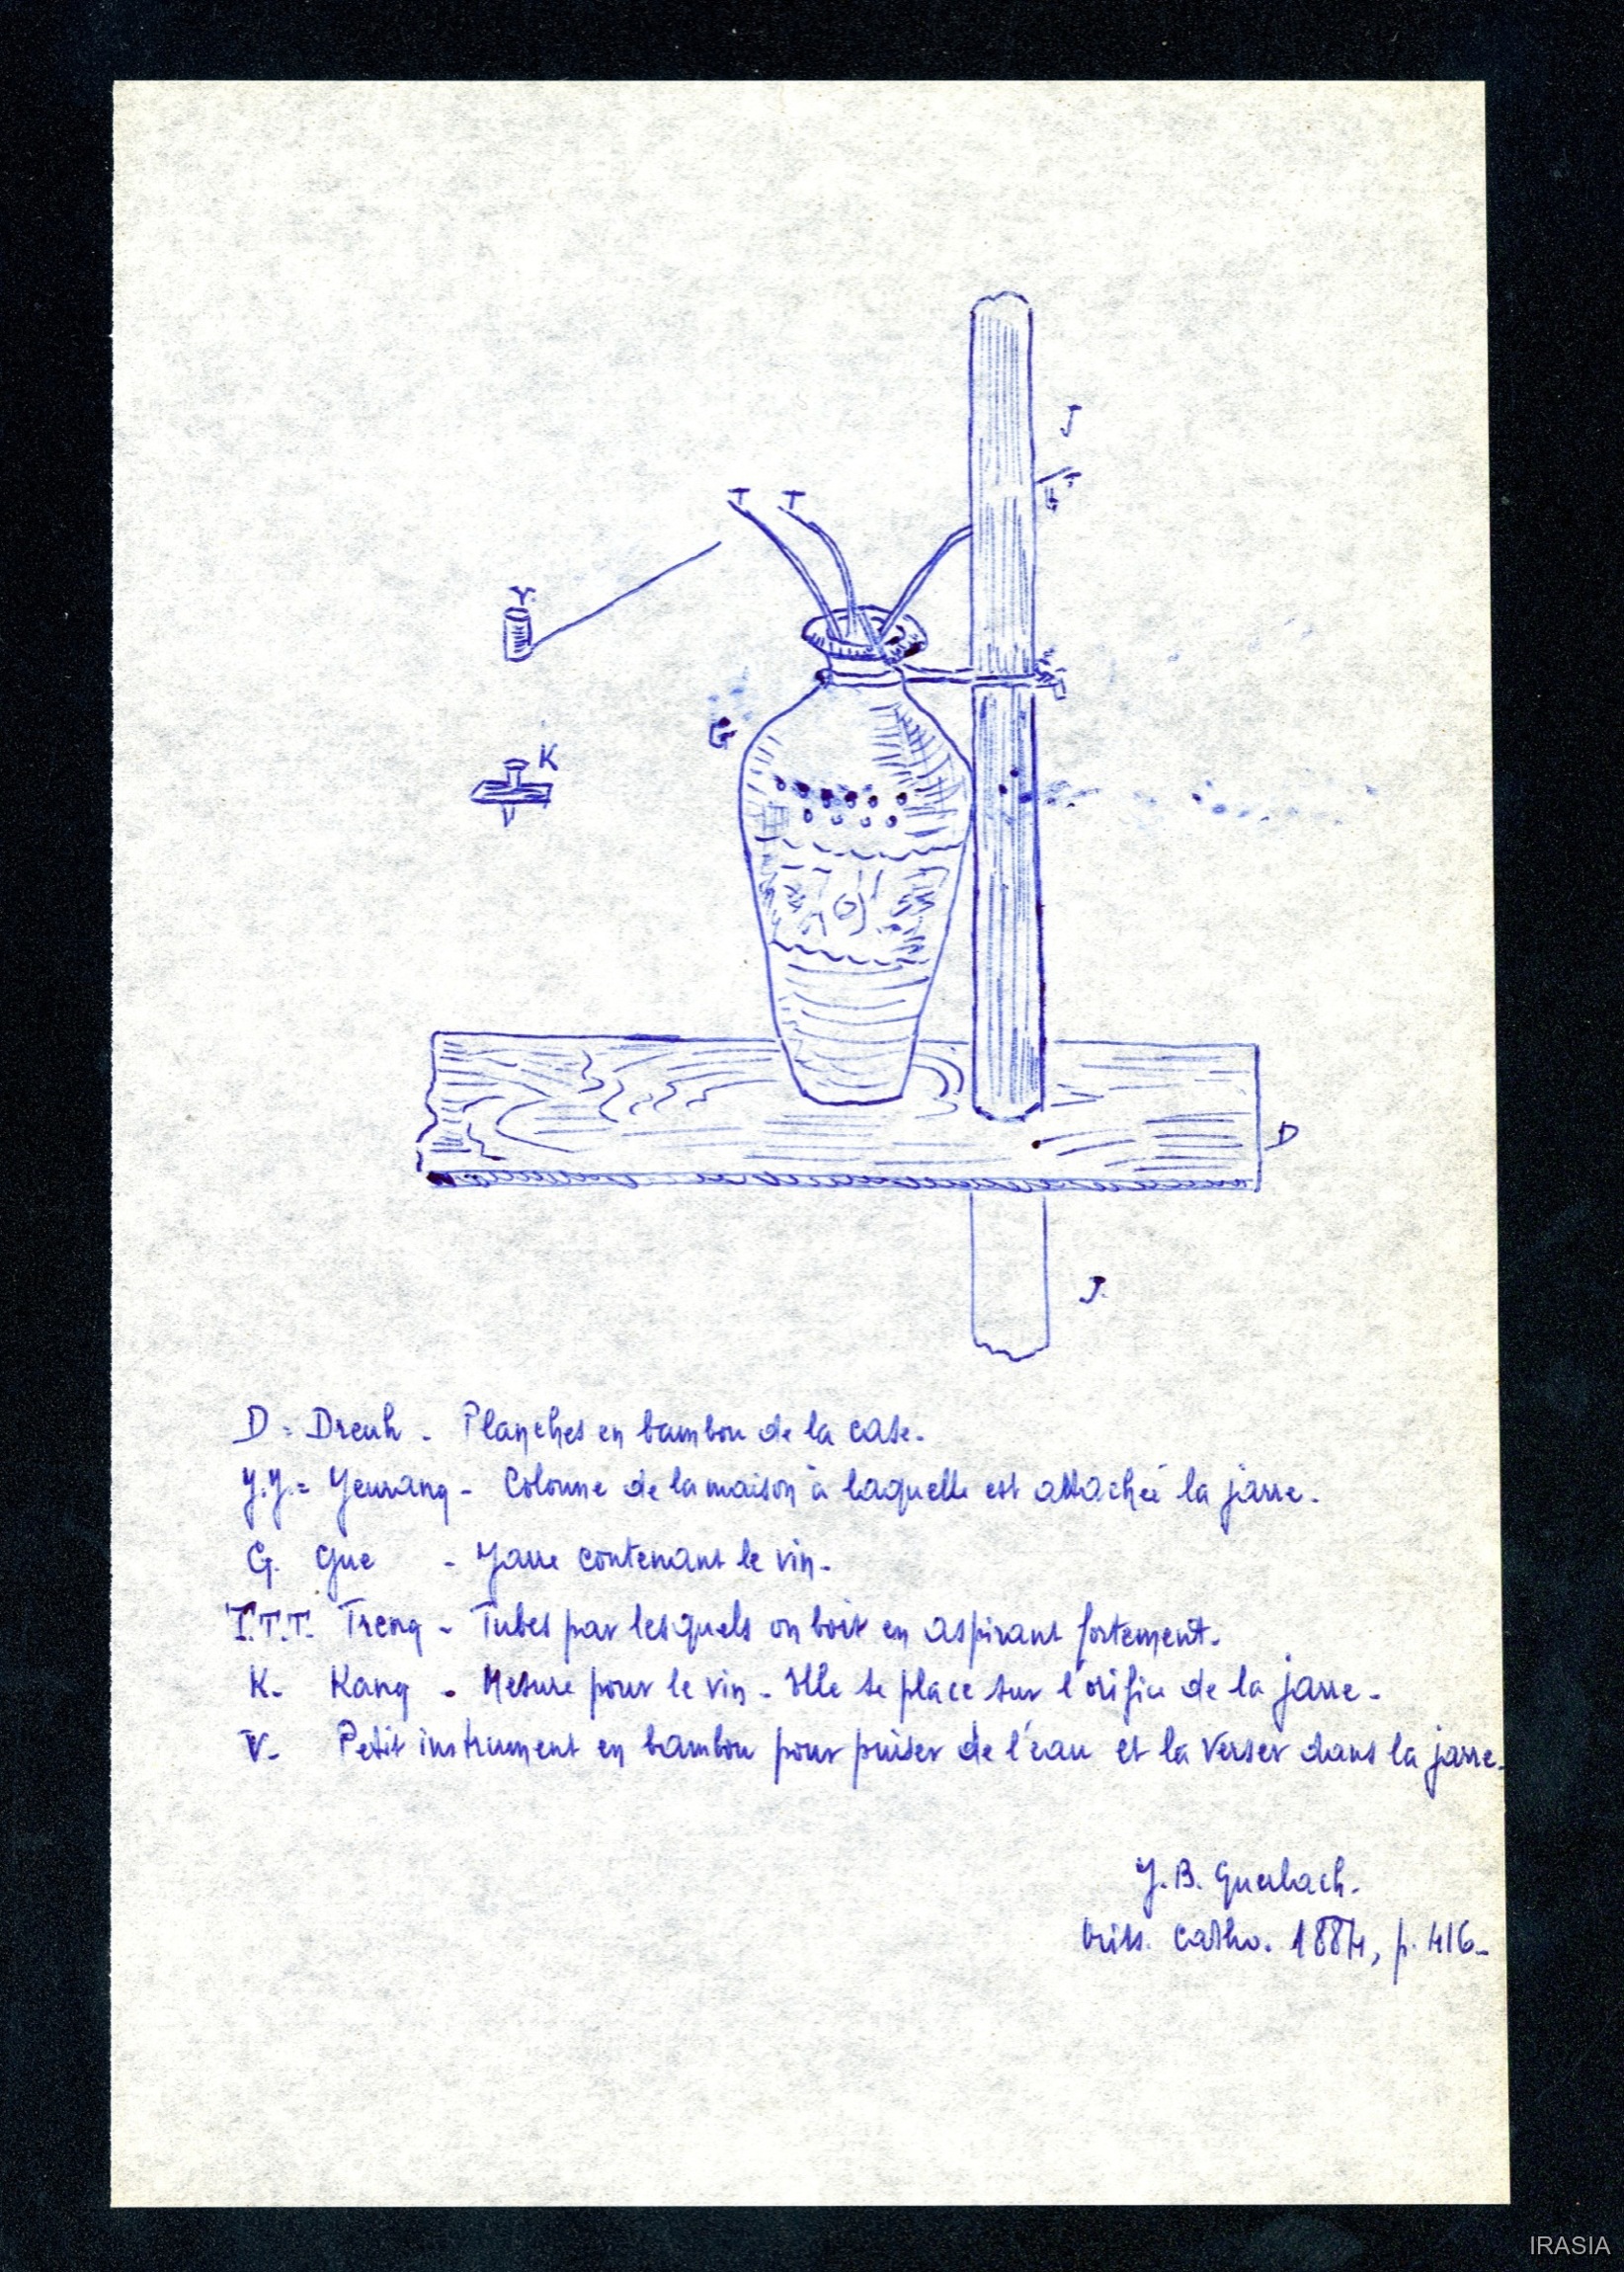 J
T T
T
V.
K
G
D
J.
D = Dreuh - Planches en bambou de la case.
J.J. = Jeurang - Colonne de la maison à laquelle est attachée la jarre.
G. Gue - Jarre contenant le vin.
T.T.T. Treng - Tubes par lesquels on boit en aspirant fortement.
K. Kang - Mesure pour le vin - Elle se place sur l'orifice de la jarre.
V. Petit instrument en bambou pour puiser de l'eau et la verser dans la jarre.
J.B. Guerlach.
Miss. Catho. 1884, p. 416.
IRASIA